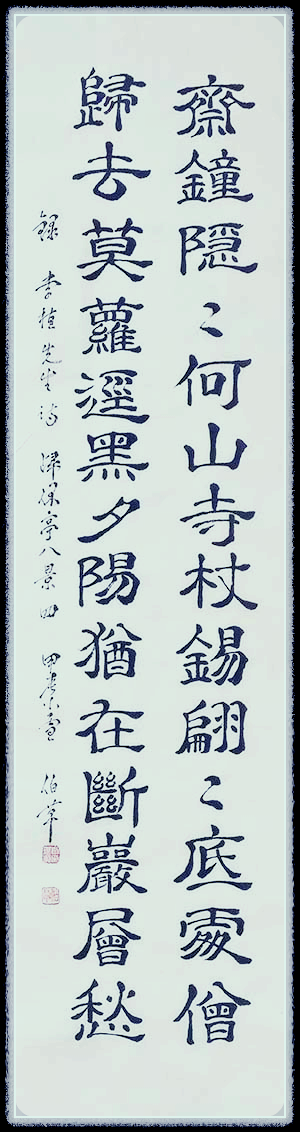 齋鐘隱〻何山寺杖錫翩〻底處僧
歸去莫蘿逕黑夕陽猶在斷巖層愁
錄 李植先生詩 保亭八景 四 甲